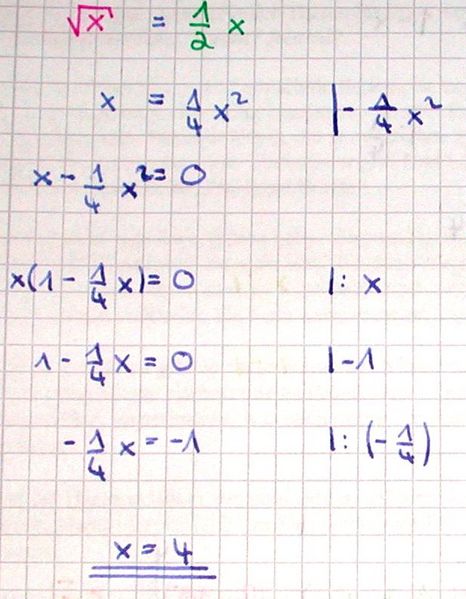 √x = 1/2 x
x = 1/4 x² |- 1/4 x²
x - 1/4 x² = 0
x(1 - 1/4 x) = 0 |: x
1 - 1/4 x = 0 |-1
- 1/4 x = -1 |: (- 1/4)
x = 4